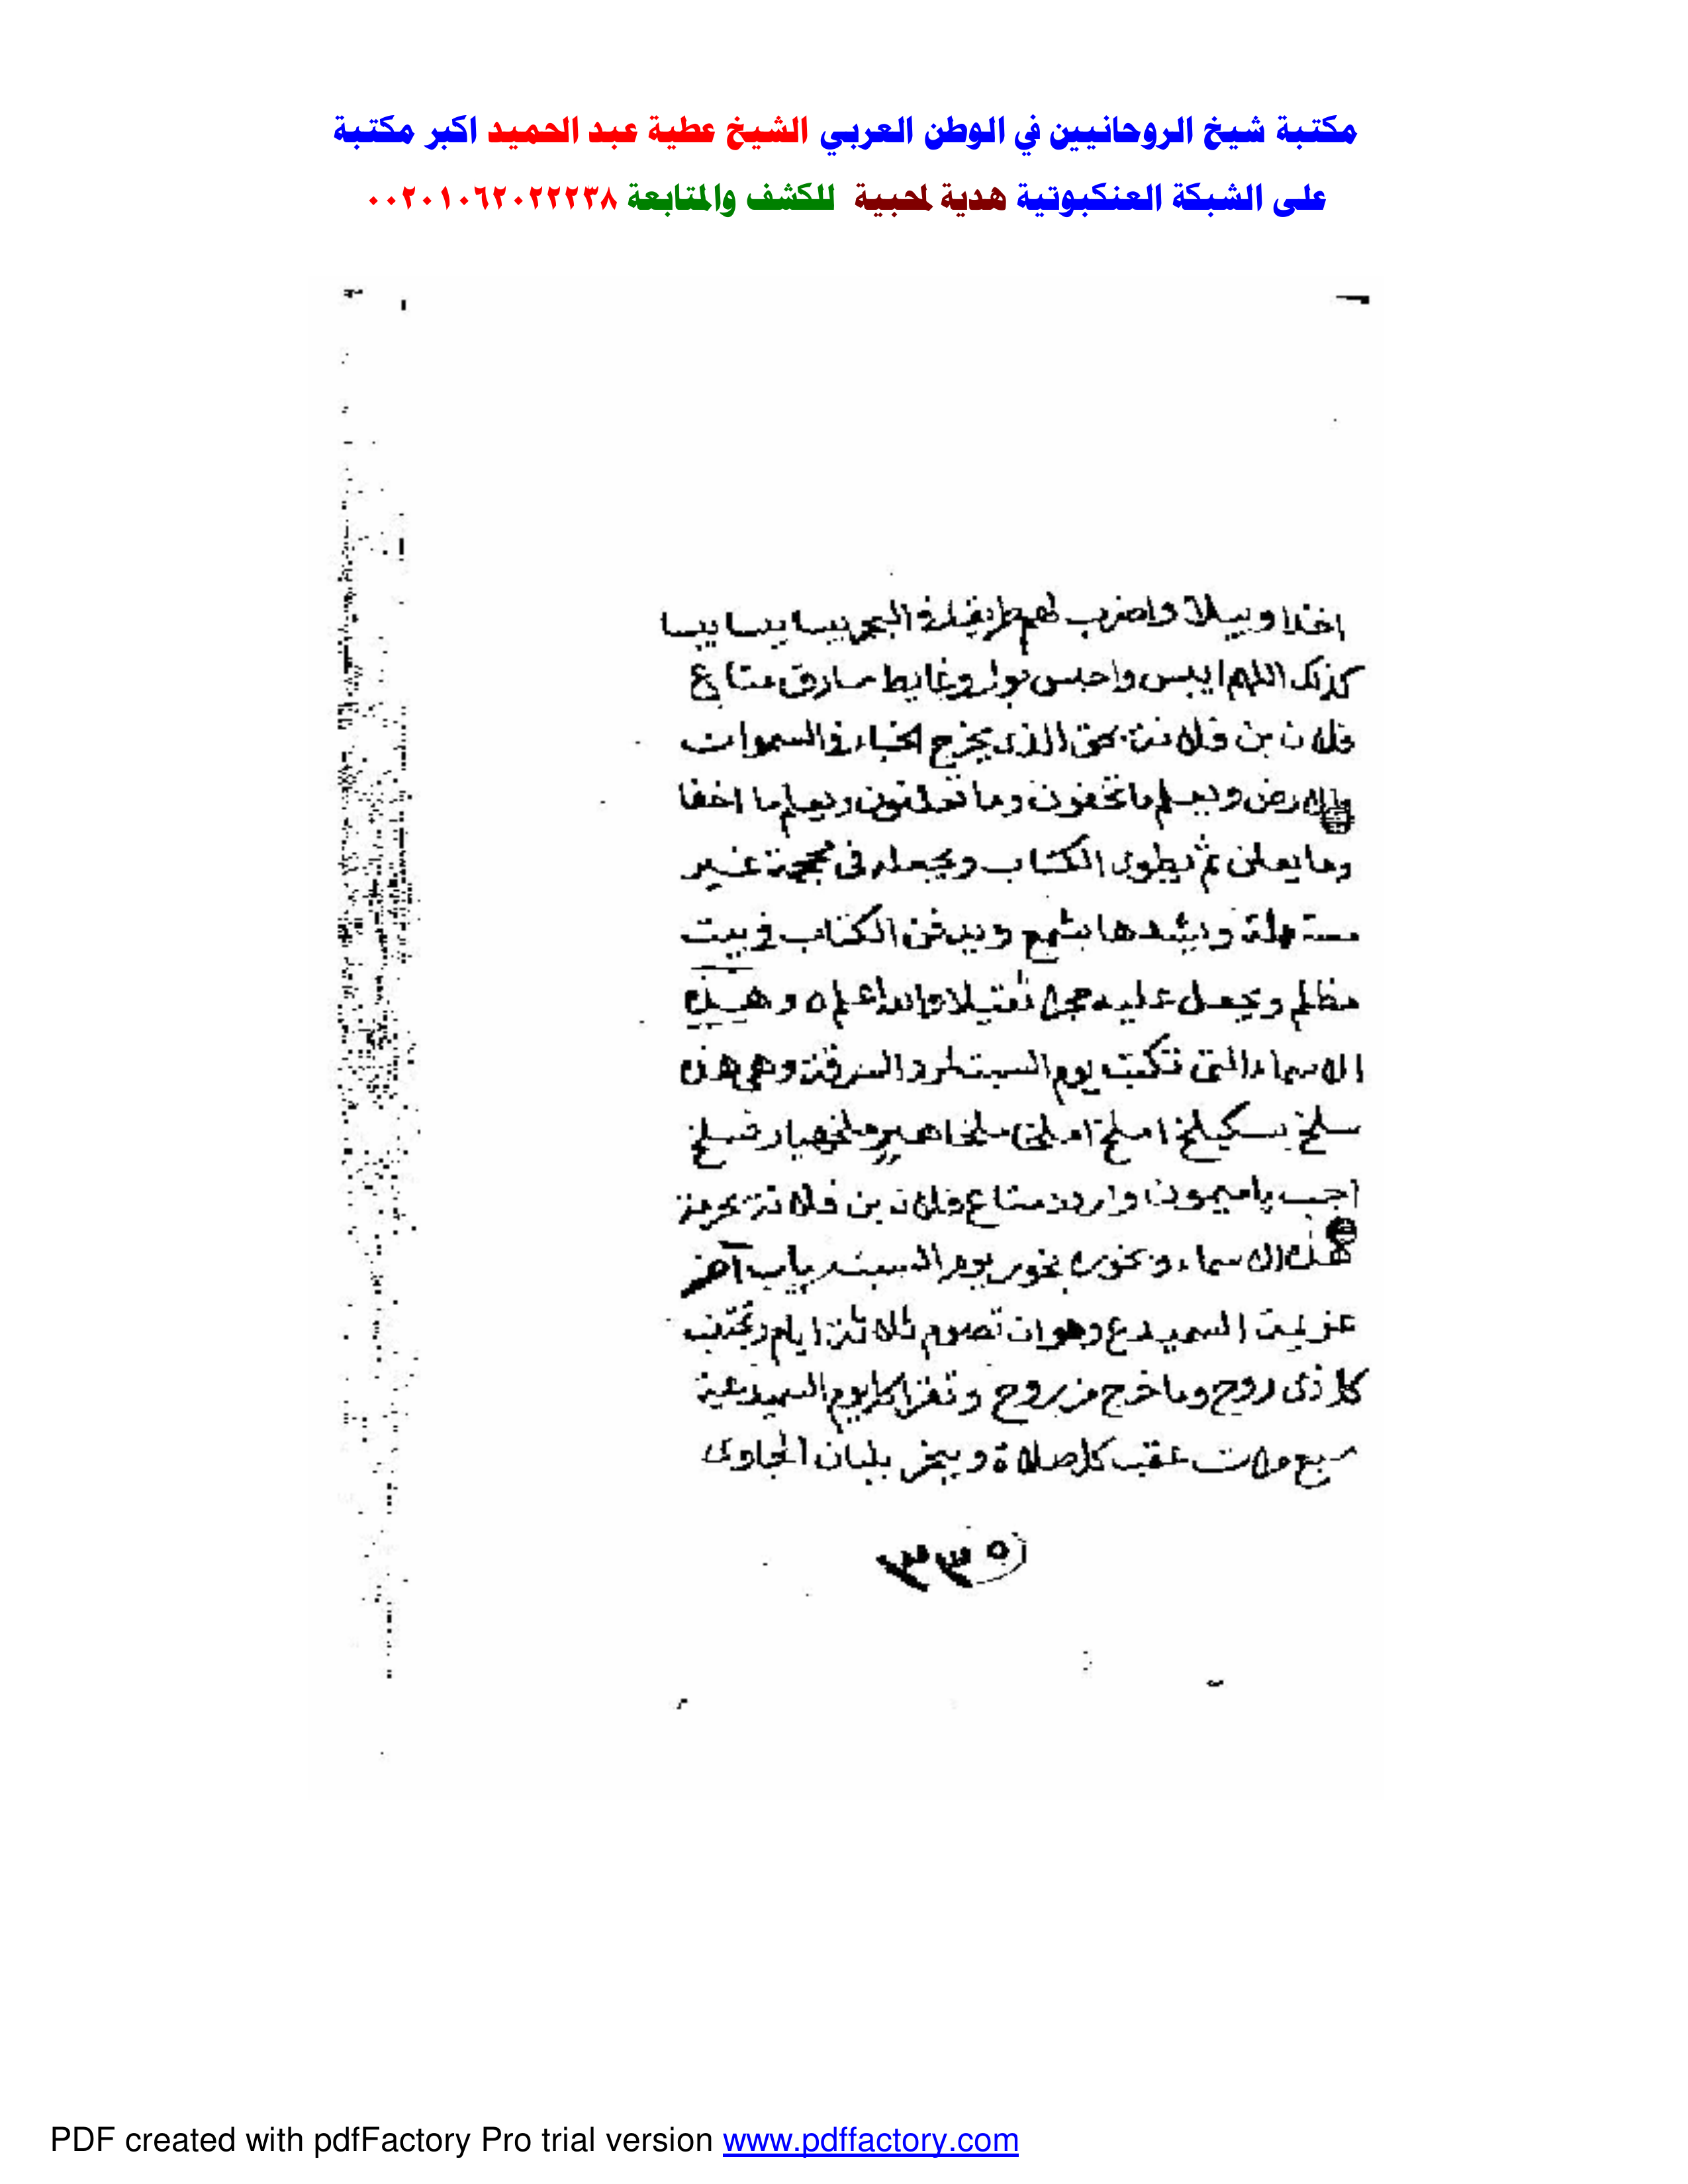 مكتبة شيخ الروحانيين في الوطن العربي الشيخ عطية عبد الحميد اكبر مكتبة
على الشبكة العنكبوتية هدية لمحبية للكشف والمتابعة ٠٠٢٠١٠٦٢٠٢٢٢٣٨
اخذا وبيلا واضرب لهم طريقا في البحر يبسا يبسا يبسا
كذلك اللهم ايبس واحبس بول وغايط سارق متاع
فلان بن فلانة بحق الذي يخرج الخباء في السموات
والارض ويعلم ما تخفون وما تعلنون ويعلم ما اخفا
وما يعلن ثم يطوى الكتاب ويجعله فى محجمة غير
مستهلة ويشدها بشمع ويدفن الكتاب في بيت
مظلم ويجعل عليه حجرا ثقيلا والله اعلم ٥ وهذه
الاسماء التى تكتب يوم السبت لرد السرقة وهى هذه
سلخ سكيلخ املخ املخ ملخا هير ملخهيار ضلخ
اجب ياميمون واردد متاع فلان بن فلانة بحرمة
هذه الاسماء وبخوره بخور يوم السبت باب آخر
عزيمة السميدع وهو ان تصوم ثلاثة ايام وتجتنب
كل ذى روح وما خرج من روح وتقرا كل يوم السميدعية
سبع مرات عقب كل صلاة ويبخر بلبان الجاوى
٣٣٥
PDF created with pdfFactory Pro trial version www.pdffactory.com